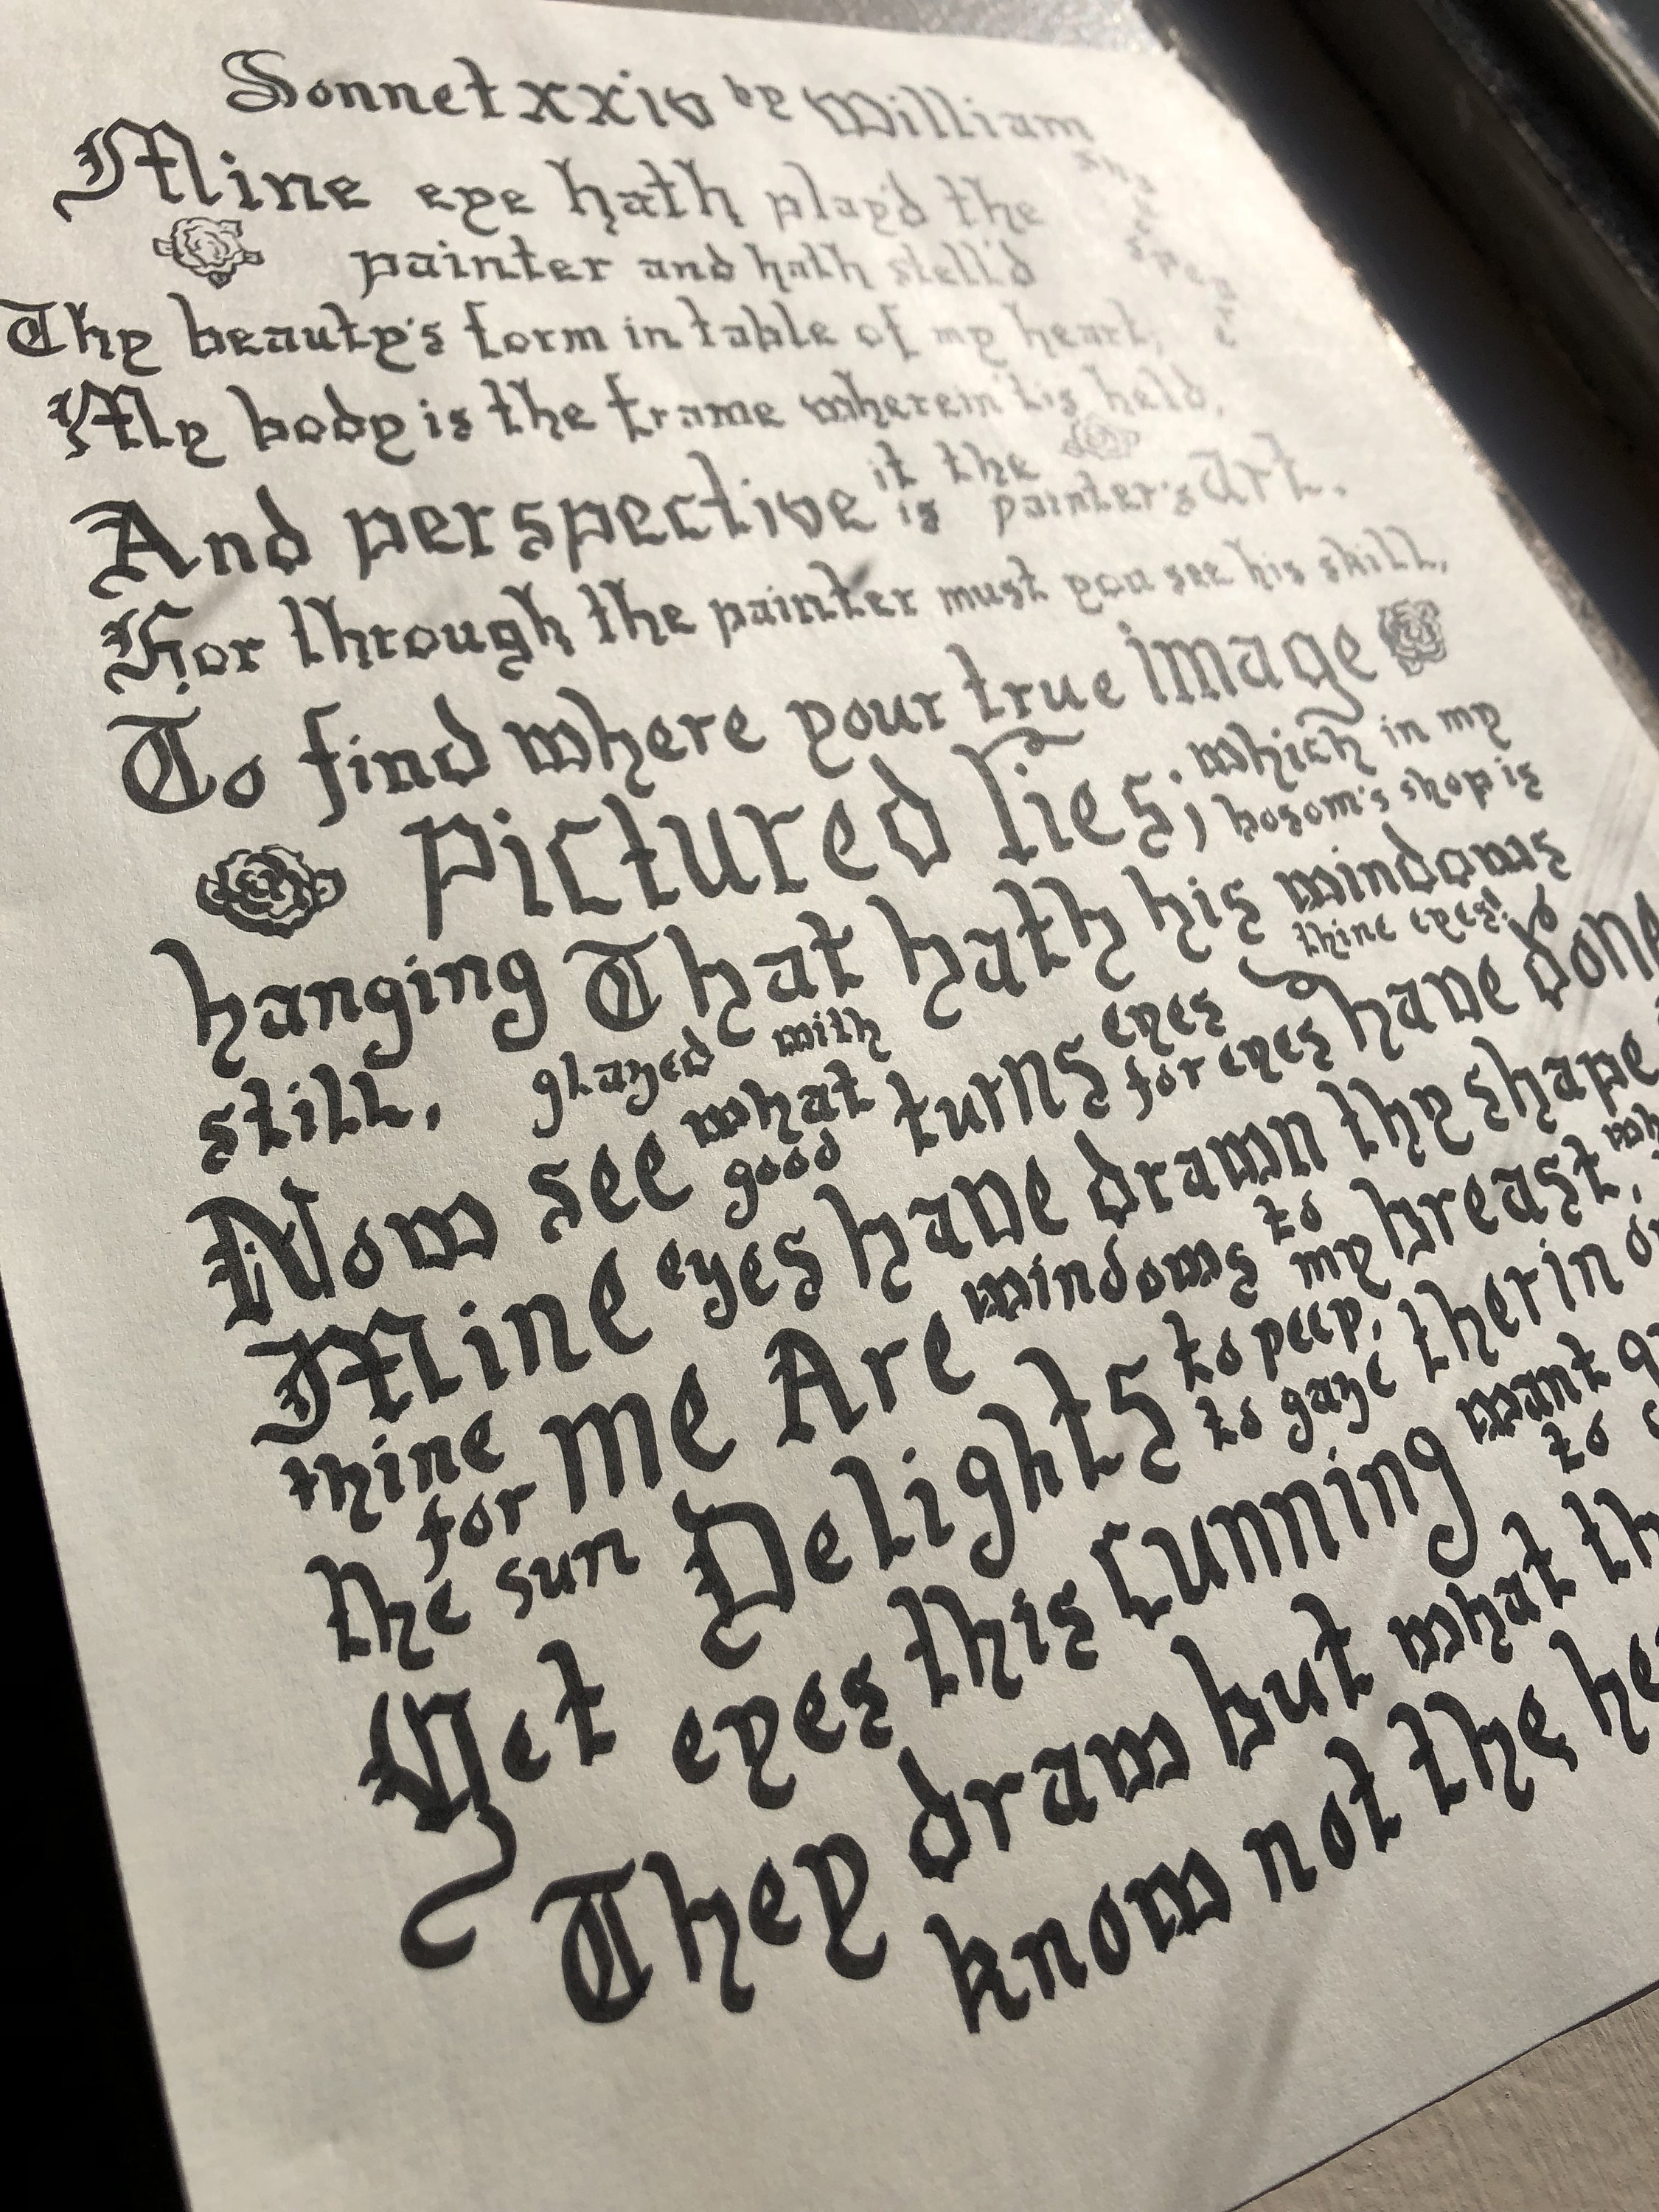 Sonnet xxiv by William
Shakespeare
Mine eye hath play'd the
painter and hath stell'd
Thy beauty's form in table of my heart;
My body is the frame wherein 'tis held,
And perspective it is the painter's art.
For through the painter must you see his skill,
To find where your true image
Pictured lies; which in my
bosom's shop is
hanging That hath his windows
still, glazed with thine eyes!
Now see what good turns eyes for eyes have done
Mine eyes have drawn thy shape
thine for me Are windows to my breast,
the sun Delights to peep, to gaze therin
Yet eyes this cunning want
to
They draw but what
know not the